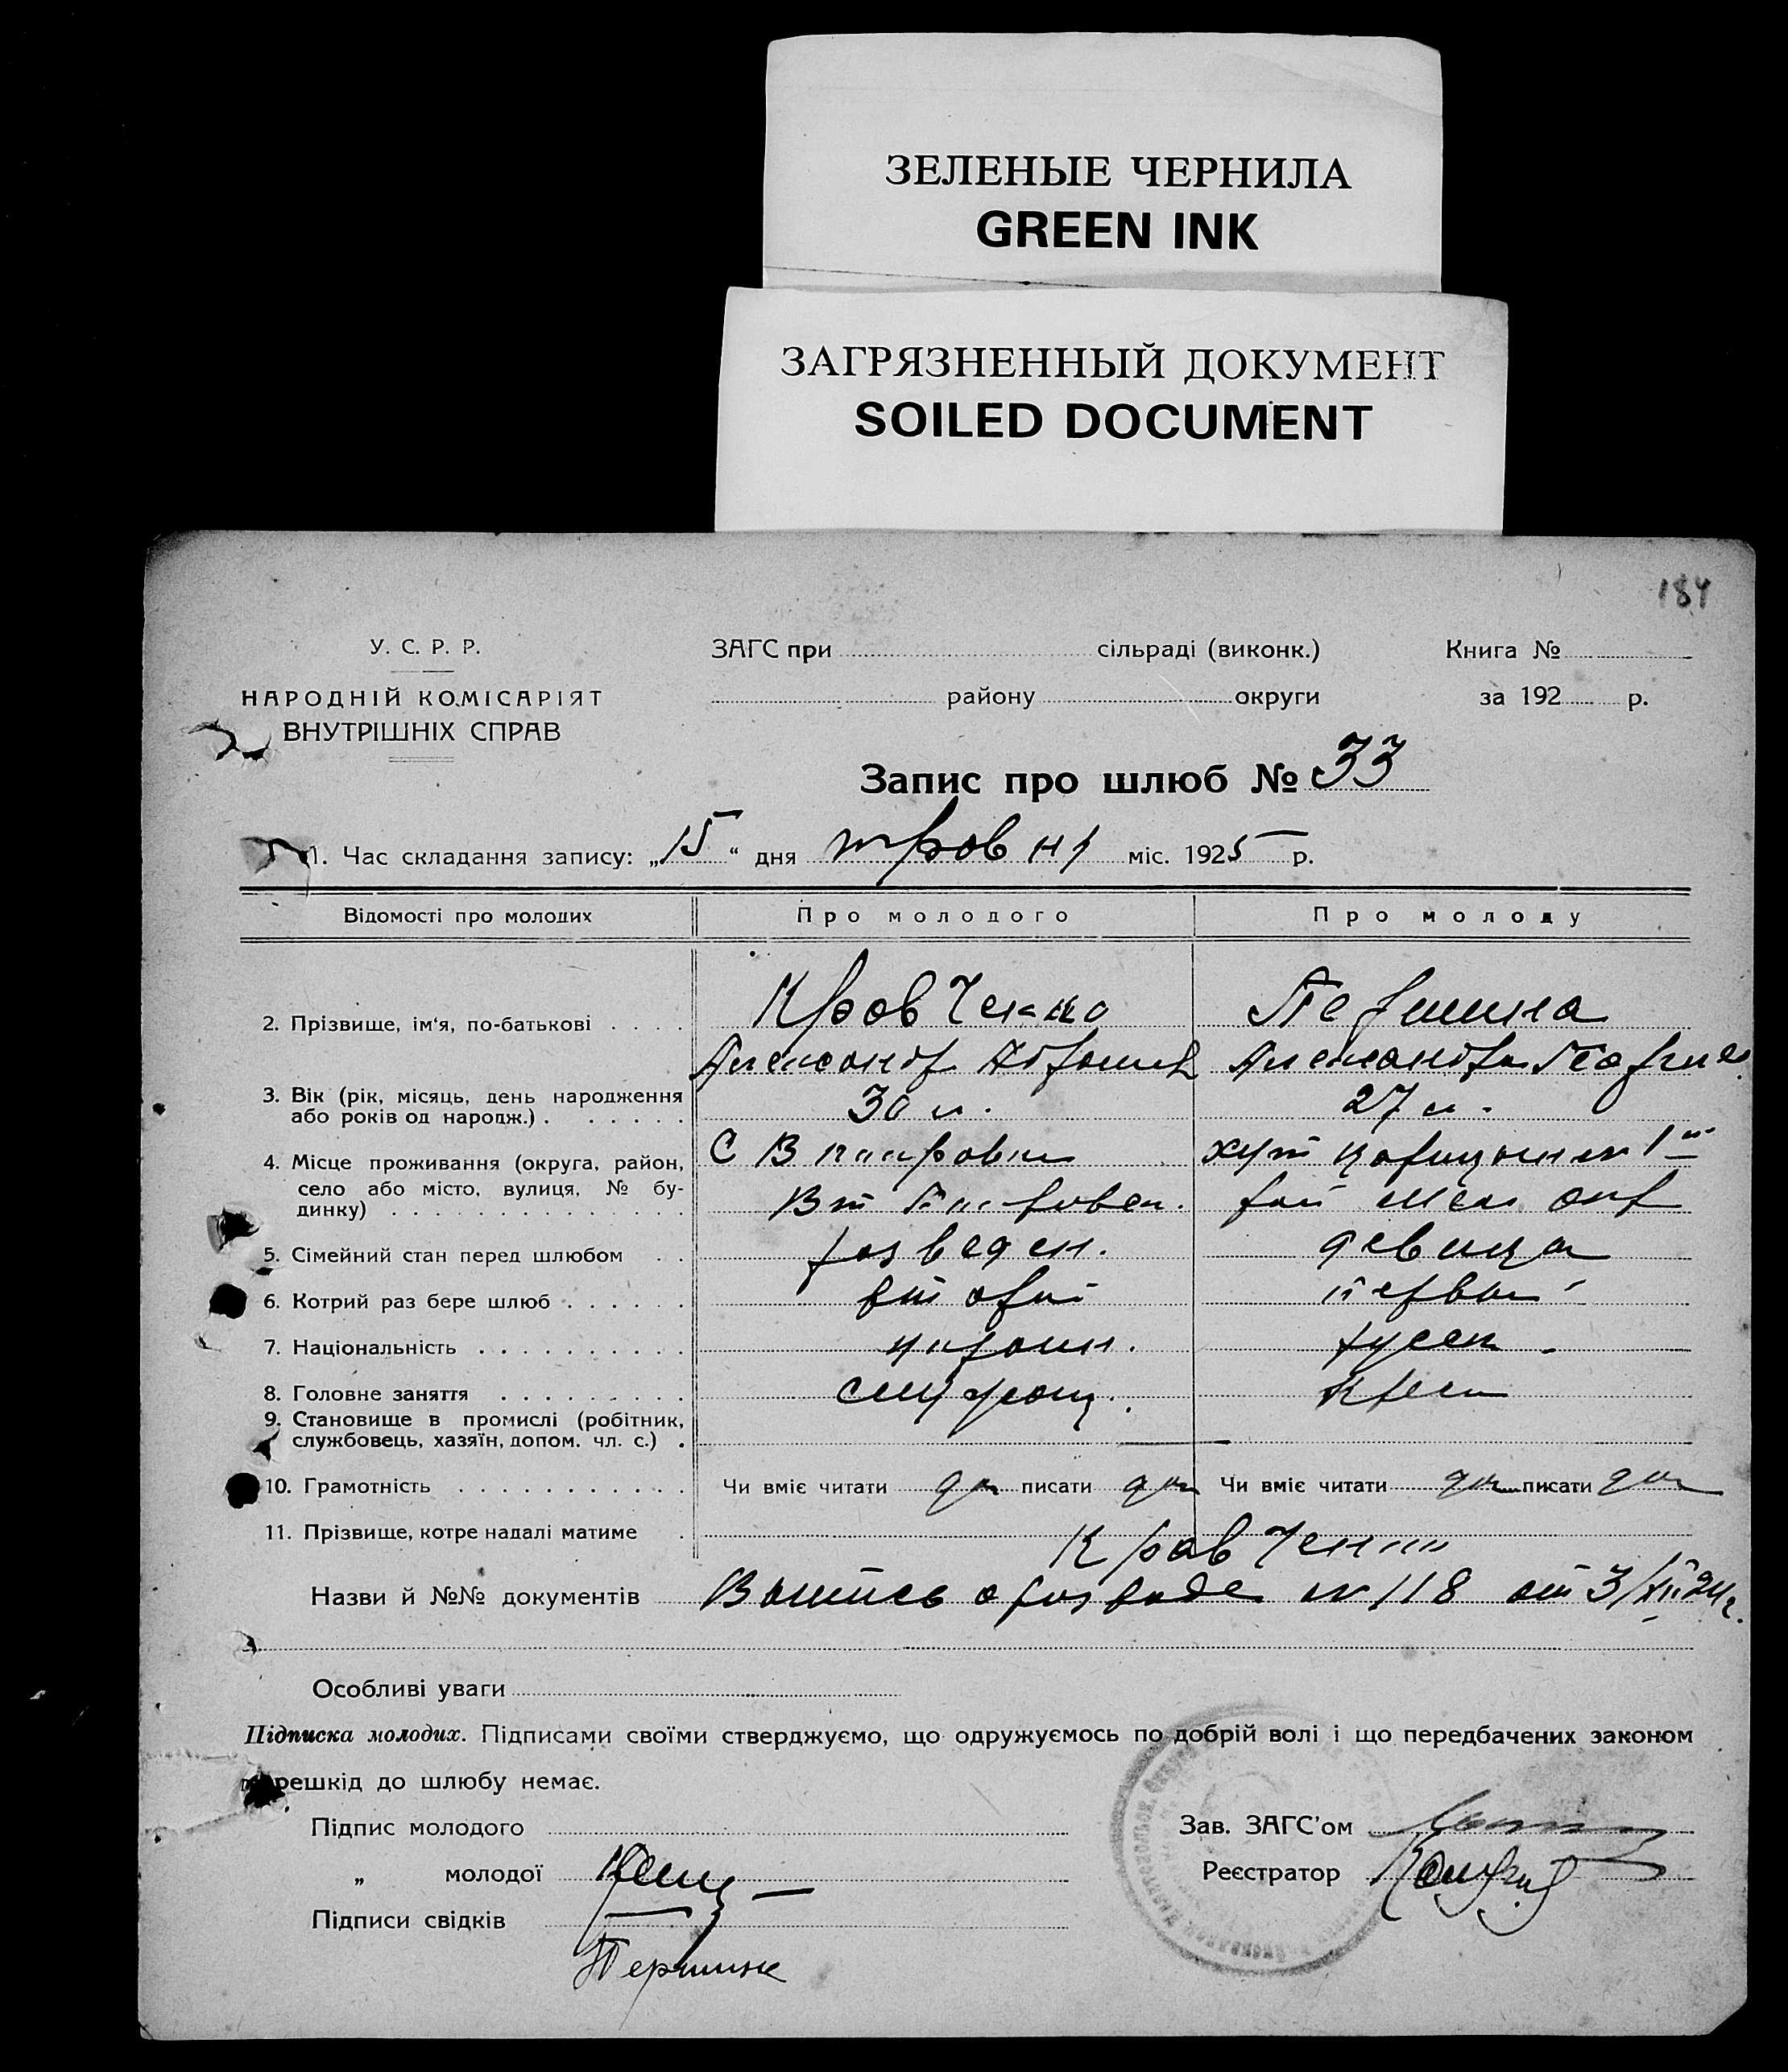 ЗЕЛЕНЫЕ ЧЕРНИЛА
GREEN INK
ЗАГРЯЗНЕННЫЙ ДОКУМЕНТ
SOILED DOCUMENT
184
У. С. Р. Р. ЗАГС при сільраді (виконк.) Книга №
НАРОДНІЙ КОМІСАРІЯТ району округи за 192 р.
ВНУТРІШНІХ СПРАВ
Запис про шлюб № 33
1. Час складання запису: „15“ дня травня міс. 1925 р.
Відомості про молодих Про молодого Про молоду
2. Прізвище, ім‘я, по-батькові Кравченко Першина
Александр Абрамов Александра
3. Вік (рік, місяць, день народження
або років од народж.) 30 л. 27 л.
4. Місце проживання (округа, район, С В хут 1й
село або місто, вулиця, № бу-
динку)
5. Сімейний стан перед шлюбом разведен. девица
6. Котрий раз бере шлюб второй первый
7. Національність украин. русск.
8. Головне заняття Крест
9. Становище в промислі (робітник,
службовець, хазяїн, допом. чл. с.)
10. Грамотність Чи вміє читати да писати да Чи вміє читати да писати да
11. Прізвище, котре надалі матиме Кравченко
Назви й №№ документів Выпись о разводе № 118 от 3/XII 24 г.
Особливі уваги
Підписка молодих. Підписами своїми стверджуємо, що одружуємось по добрій волі і що передбачених законом
перешкід до шлюбу немає.
Підпис молодого Зав. ЗАГС’ом
„ молодої Реєстратор
Підписи свідків
Першина